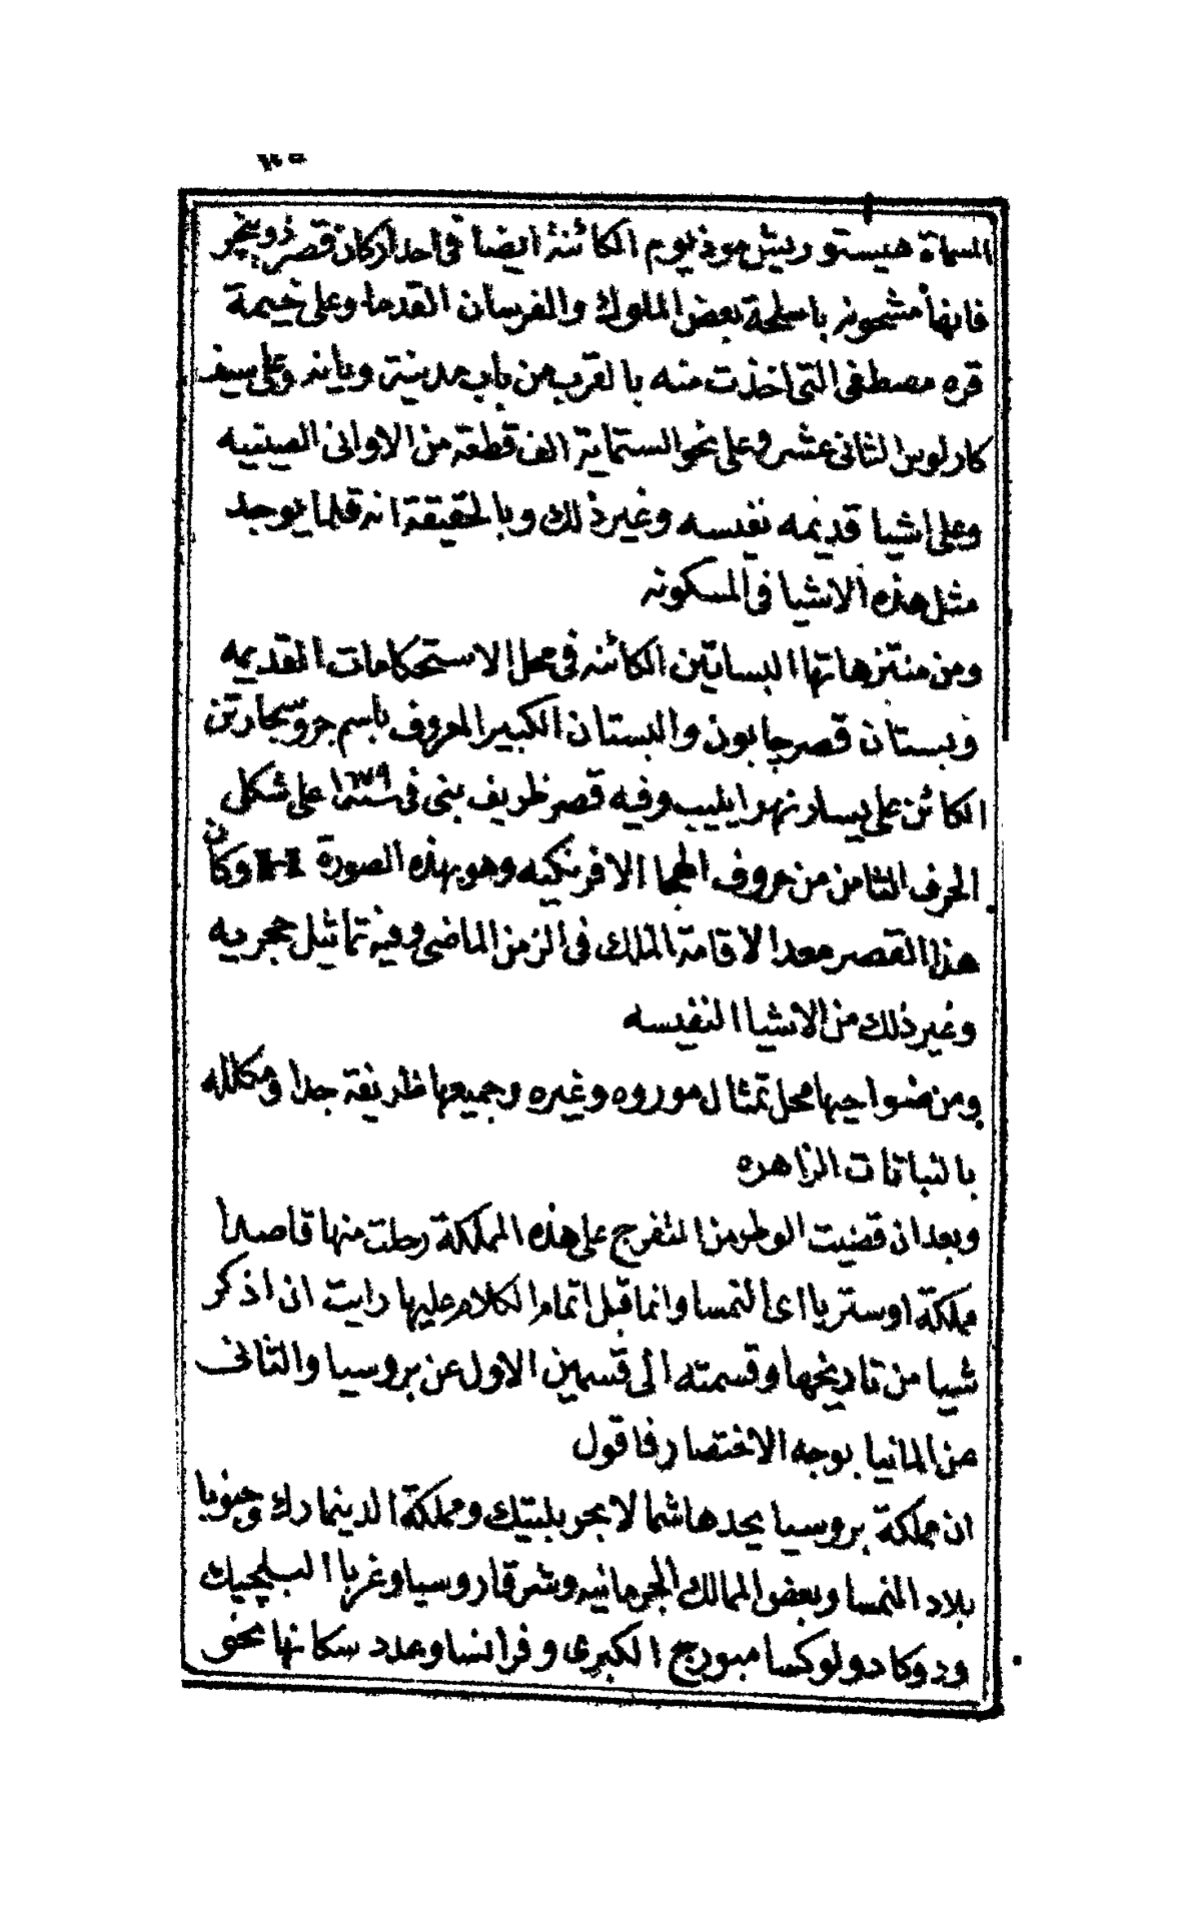 المسماة هيستوريش موذيوم الكائنة ايضا فى احد اركان قصر ذوينجر
فانها مشحونه باسلحة بعض الملوك والفرسان القدما وعلى خيمة
قره مصطفى التى اخذت منه بالقرب من باب مدينة ويانه وعلى سيف
كارلوس الثانى عشر وعلى نحو الستماية الف قطعة من الاوانى الصينيه
وعلى اشيا قديمه نفيسه وغير ذلك وبالحقيقة انه قلما يوجد
مثل هذه الاشيا فى المسكونه
ومن منتزهاتها البساتين الكائنه فى محل الاستحكامات القديمه
وبستان قصر چابون والبستان الكبير المعروف باسم جروسجارتن
الكائن على يسار نهر ايلييب وفيه قصر ظريف بنى فى سنة ١٦٧٩ على شكل
الحرف الثامن من حروف الهجا الافرنكيه وهو بهذه الصورة H وكان
هذا القصر معدا لاقامة الملك فى الزمن الماضى وفيه تماثيل حجريه
وغير ذلك من الاشيا النفيسه
ومن ضواحيها محل تمثال موروه وغيره وجميعها ظريفة جدا ومكلله
بالنباتات الزاهره
وبعد ان قضيت الوطر من التفرج على هذه المملكة رحلت منها قاصدا
مملكة اوستريا اى النمسا وانما قبل اتمام الكلام عليها رايت ان اذكر
شيا من تاريخها وقسمته الى قسمين الاول عن بروسيا والثانى
عن المانيا بوجه الاختصار فاقول
ان مملكة بروسيا يحدها شمالا بحر بلتيك ومملكة الدينمارك وجنوبا
بلاد النمسا وبعض الممالك الجرمانيه وشرقا روسيا وغربا البلچيك
ودوكا دو لوكسامبورج الكبرى وفرانسا وعدد سكانها نحو